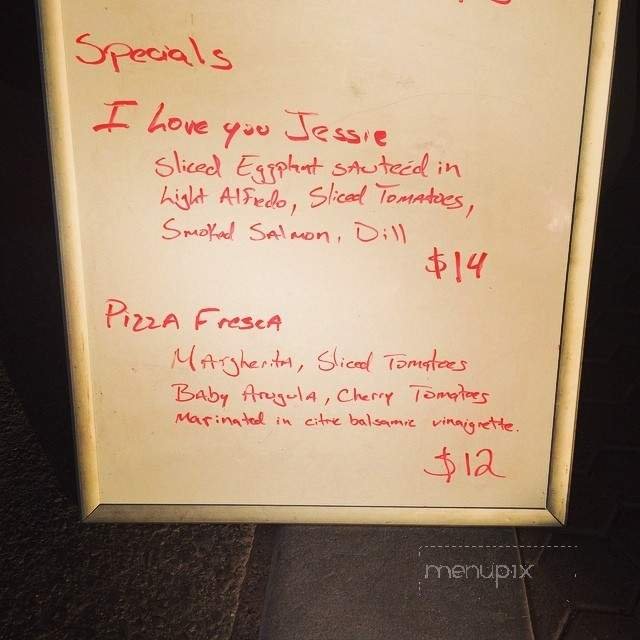 Specials
I Love you Jessie
Sliced Eggplant sauteéd in
Light Alfredo, Sliced Tomatoes,
Smoked Salmon, Dill
$14
Pizza Fresca
Margherita, Sliced Tomatoes
Baby Arugula, Cherry Tomatoes
Marinated in citric balsamic vinaigrette.
$12
menupix